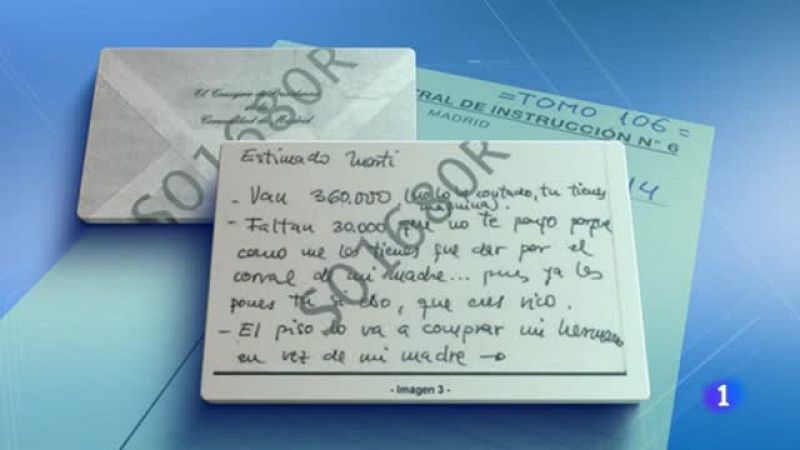 El Consejero de Presidencia
de la
Comunidad de Madrid
SO1680R
=TOMO 106=
TRAL DE INSTRUCCIÓN Nº 6
MADRID
14
Estimado Marti
- Van 360.000 (no lo he contado, tu tienes
maquina).
- Faltan 30.000 que no te pongo porque
como me los tienes que dar por el
corral de mi madre... pues ya los
pones tu si eso, que eres rico.
- El piso lo va a comprar mi hermano
en vez de mi madre →
SO1680R
- Imagen 3 -
1